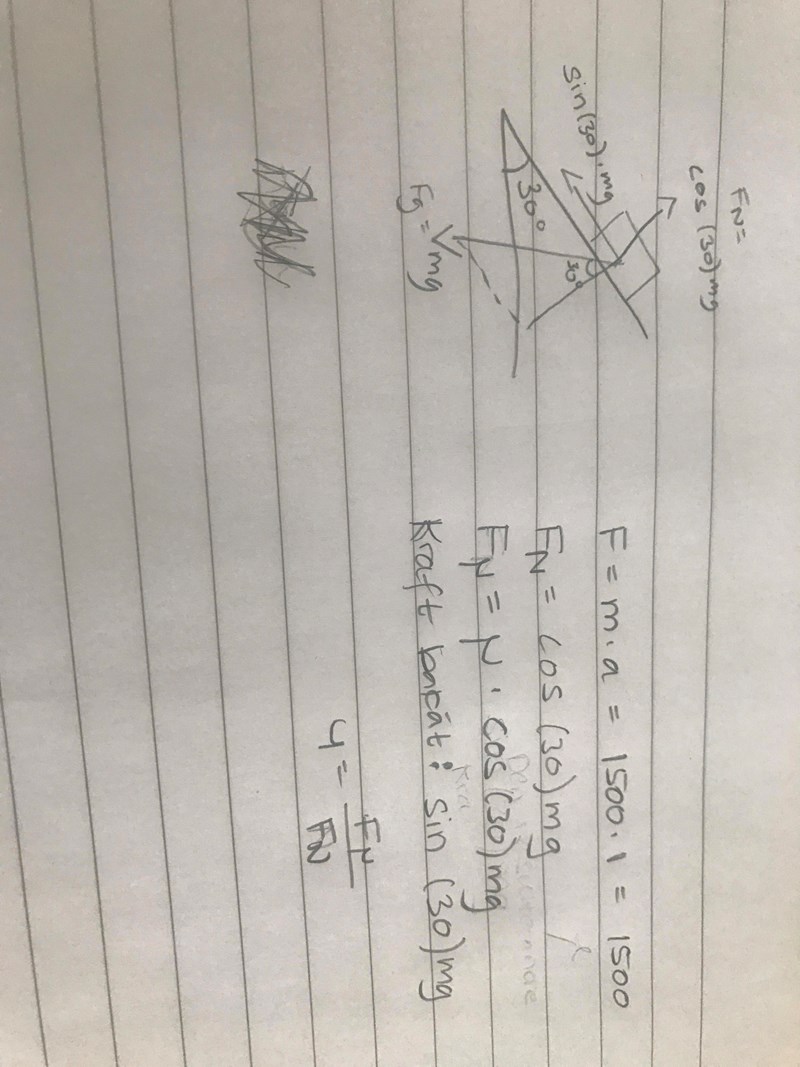 FN =
cos (30) mg
sin(30) · mg
30°
30°
Fg = mg
F = m · a = 1500 · 1 = 1500
FN = cos (30) mg
FN = μ · cos (30) mg
Kraft bakåt : sin (30) mg